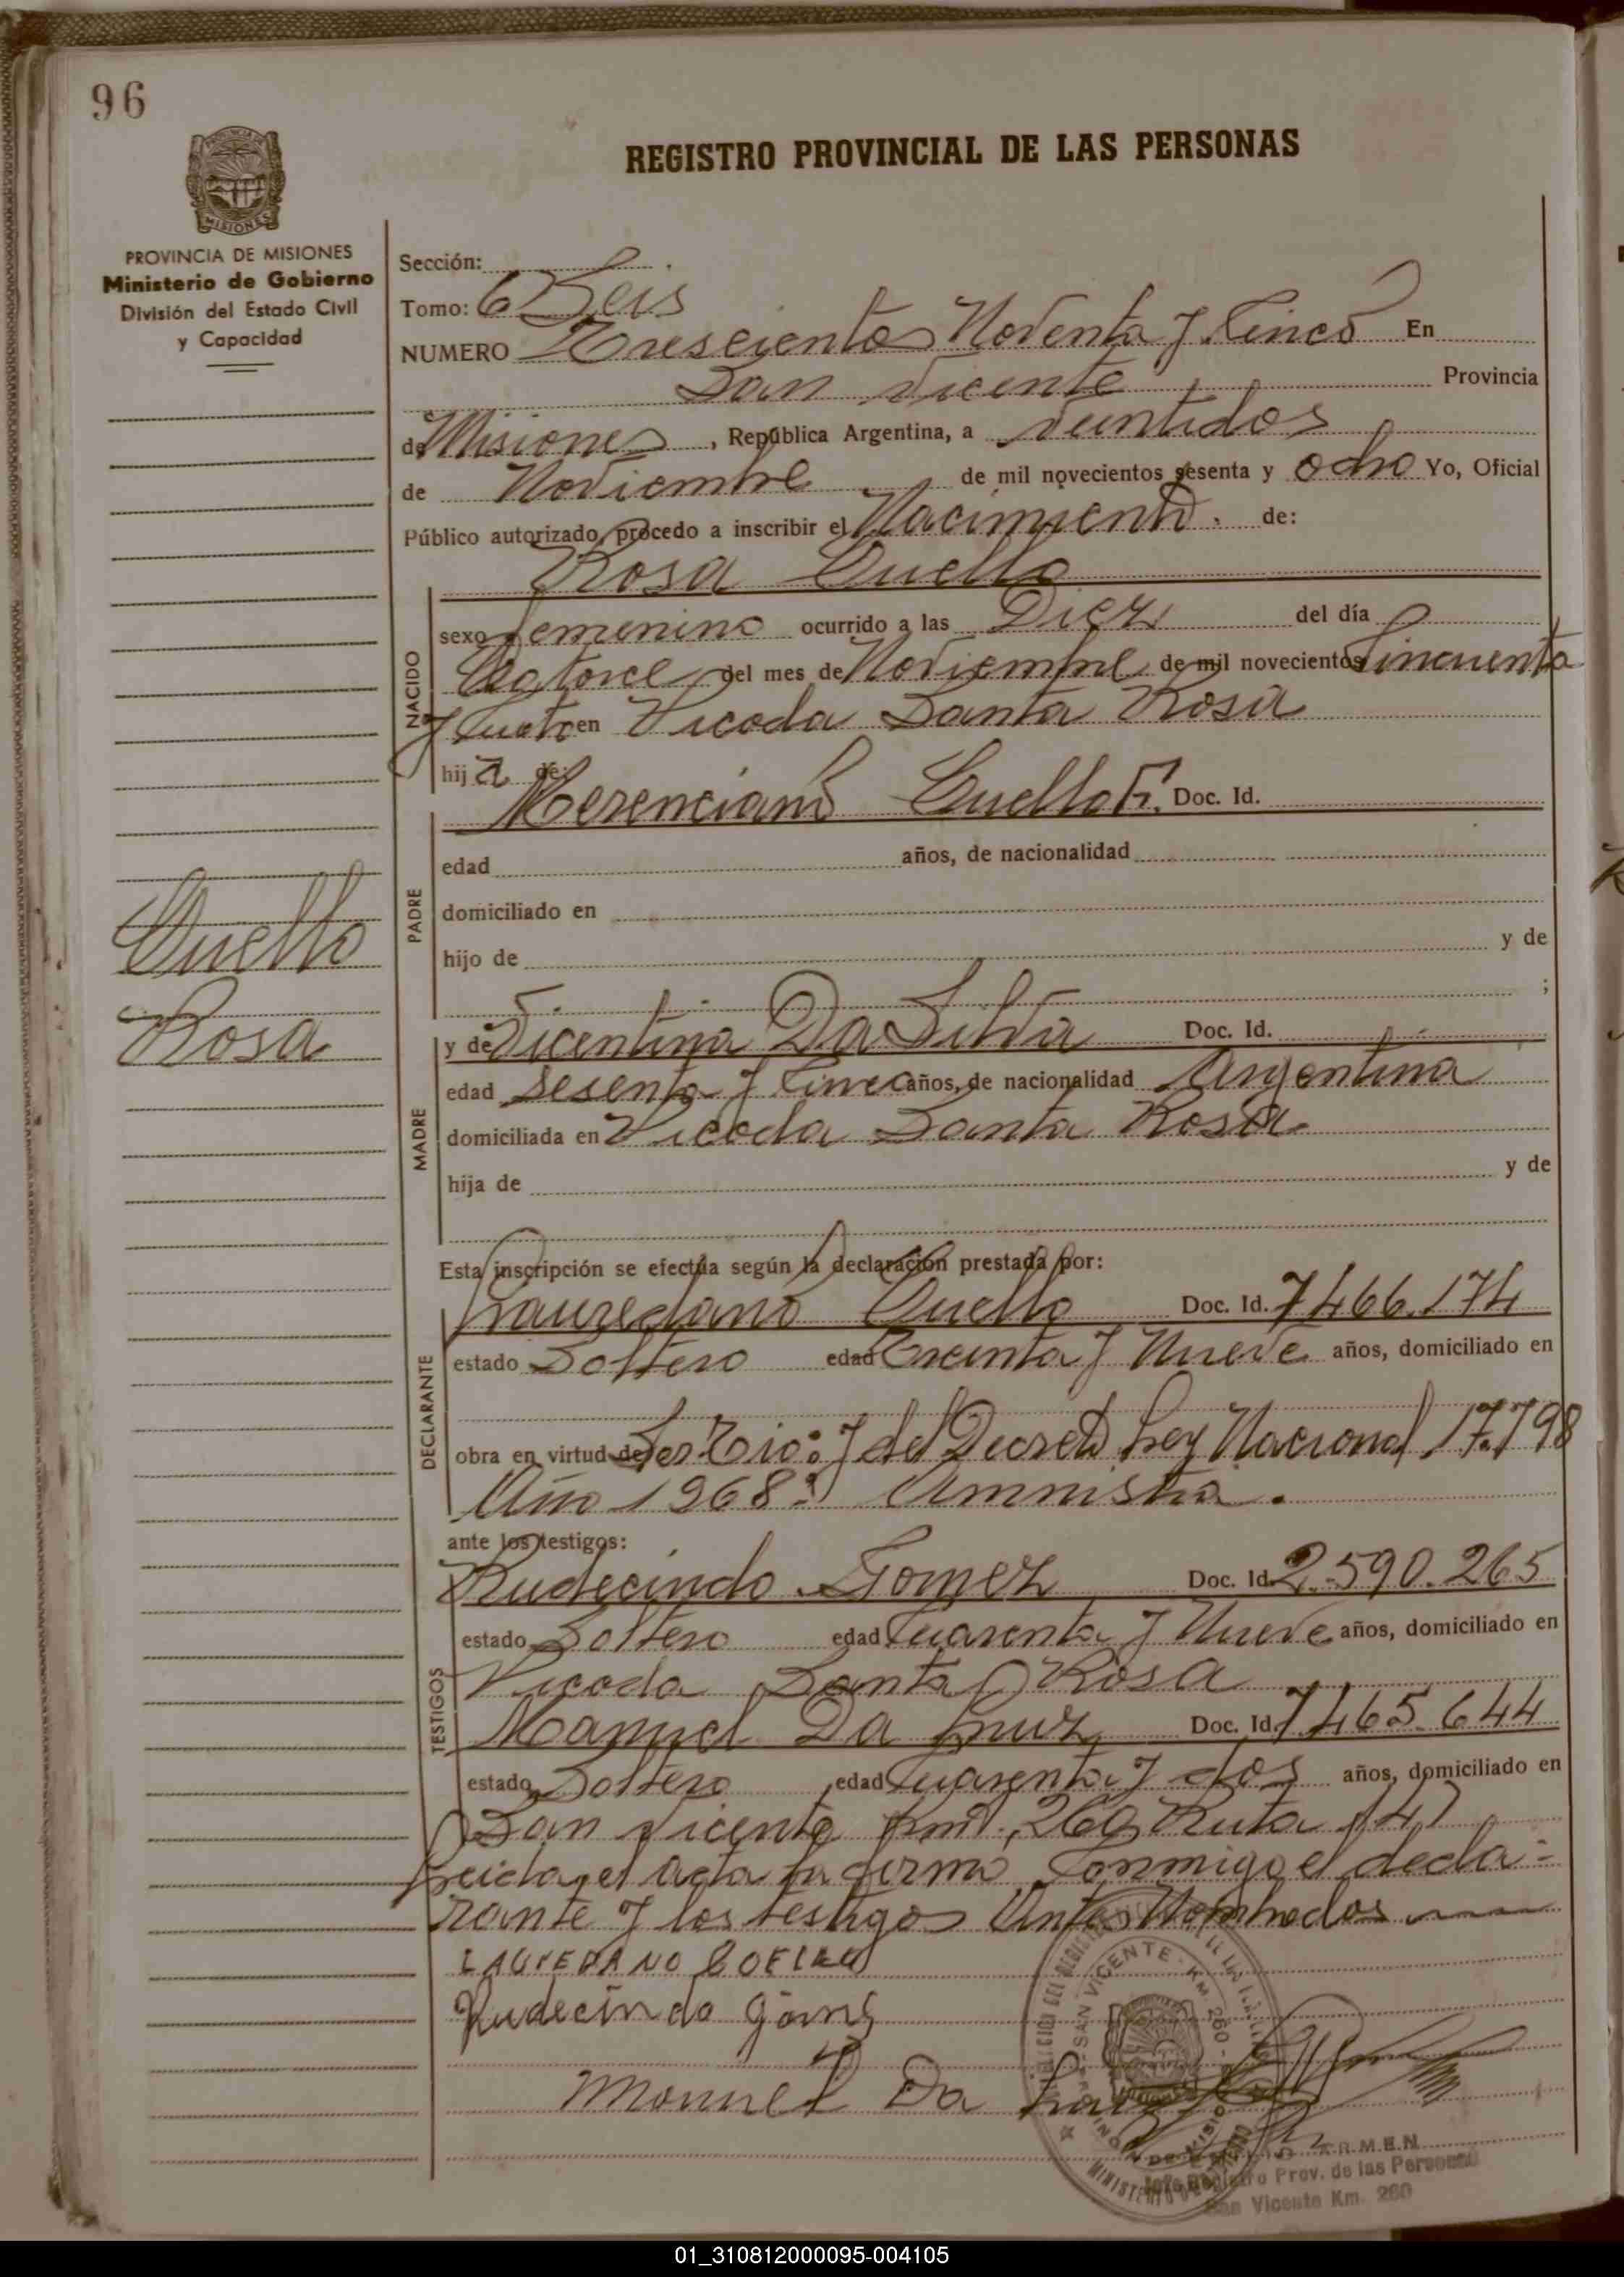 96
REGISTRO PROVINCIAL DE LAS PERSONAS
PROVINCIA DE MISIONES
Ministerio de Gobierno
División del Estado Civil
y Capacidad
Sección:
Tomo: 6 Seis
NUMERO Trescientos Noventa y Cinco En
San Vicente Provincia
de Misiones, República Argentina, a veintidos
de Noviembre de mil novecientos sesenta y ocho Yo, Oficial
Público autorizado, procedo a inscribir el Nacimiento. de:
Rosa Cuello
NACIDO
sexo femenino ocurrido a las Diez del día
Catorce del mes de Noviembre de mil novecientos Cincuenta
y en Picada Santa Rosa
hija de:
Merenciano Cuello F. Doc. Id.
PADRE
edad años, de nacionalidad
domiciliado en
hijo de y de
;
Cuello
Rosa
MADRE
y de Vicentina Da Silva Doc. Id.
edad sesenta y Cinco años, de nacionalidad Argentina
domiciliada en Picada Santa Rosa
hija de y de
Esta inscripción se efectúa según la declaración prestada por:
DECLARANTE
Lauredano Cuello Doc. Id. 7466.174
estado Soltero edad Treinta y Nueve años, domiciliado en
obra en virtud de Ser Tio: y del Decreto Ley Nacional 17.798
Año 1968: Amnistia.
ante los testigos:
TESTIGOS
Rudecindo Gomez Doc. Id. 2.590.265
estado Soltero edad Cuarenta y Nueve años, domiciliado en
Picada Santa Rosa
Manuel Da Luz Doc. Id. 7465.644
estado Soltero edad Cuarenta y dos años, domiciliado en
San Vicente Km. 260 Ruta 14
Leida el acta la firma Conmigo el decla-
rante y los testigos Antes Nombrados
LAUREDANO COELLO
Rudecindo Gomes
Manuel Da Luz
SAN VICENTE - KM 260
ARMEN
Jefe Registro Prov. de las Personas
San Vicente Km. 260
01_310812000095-004105